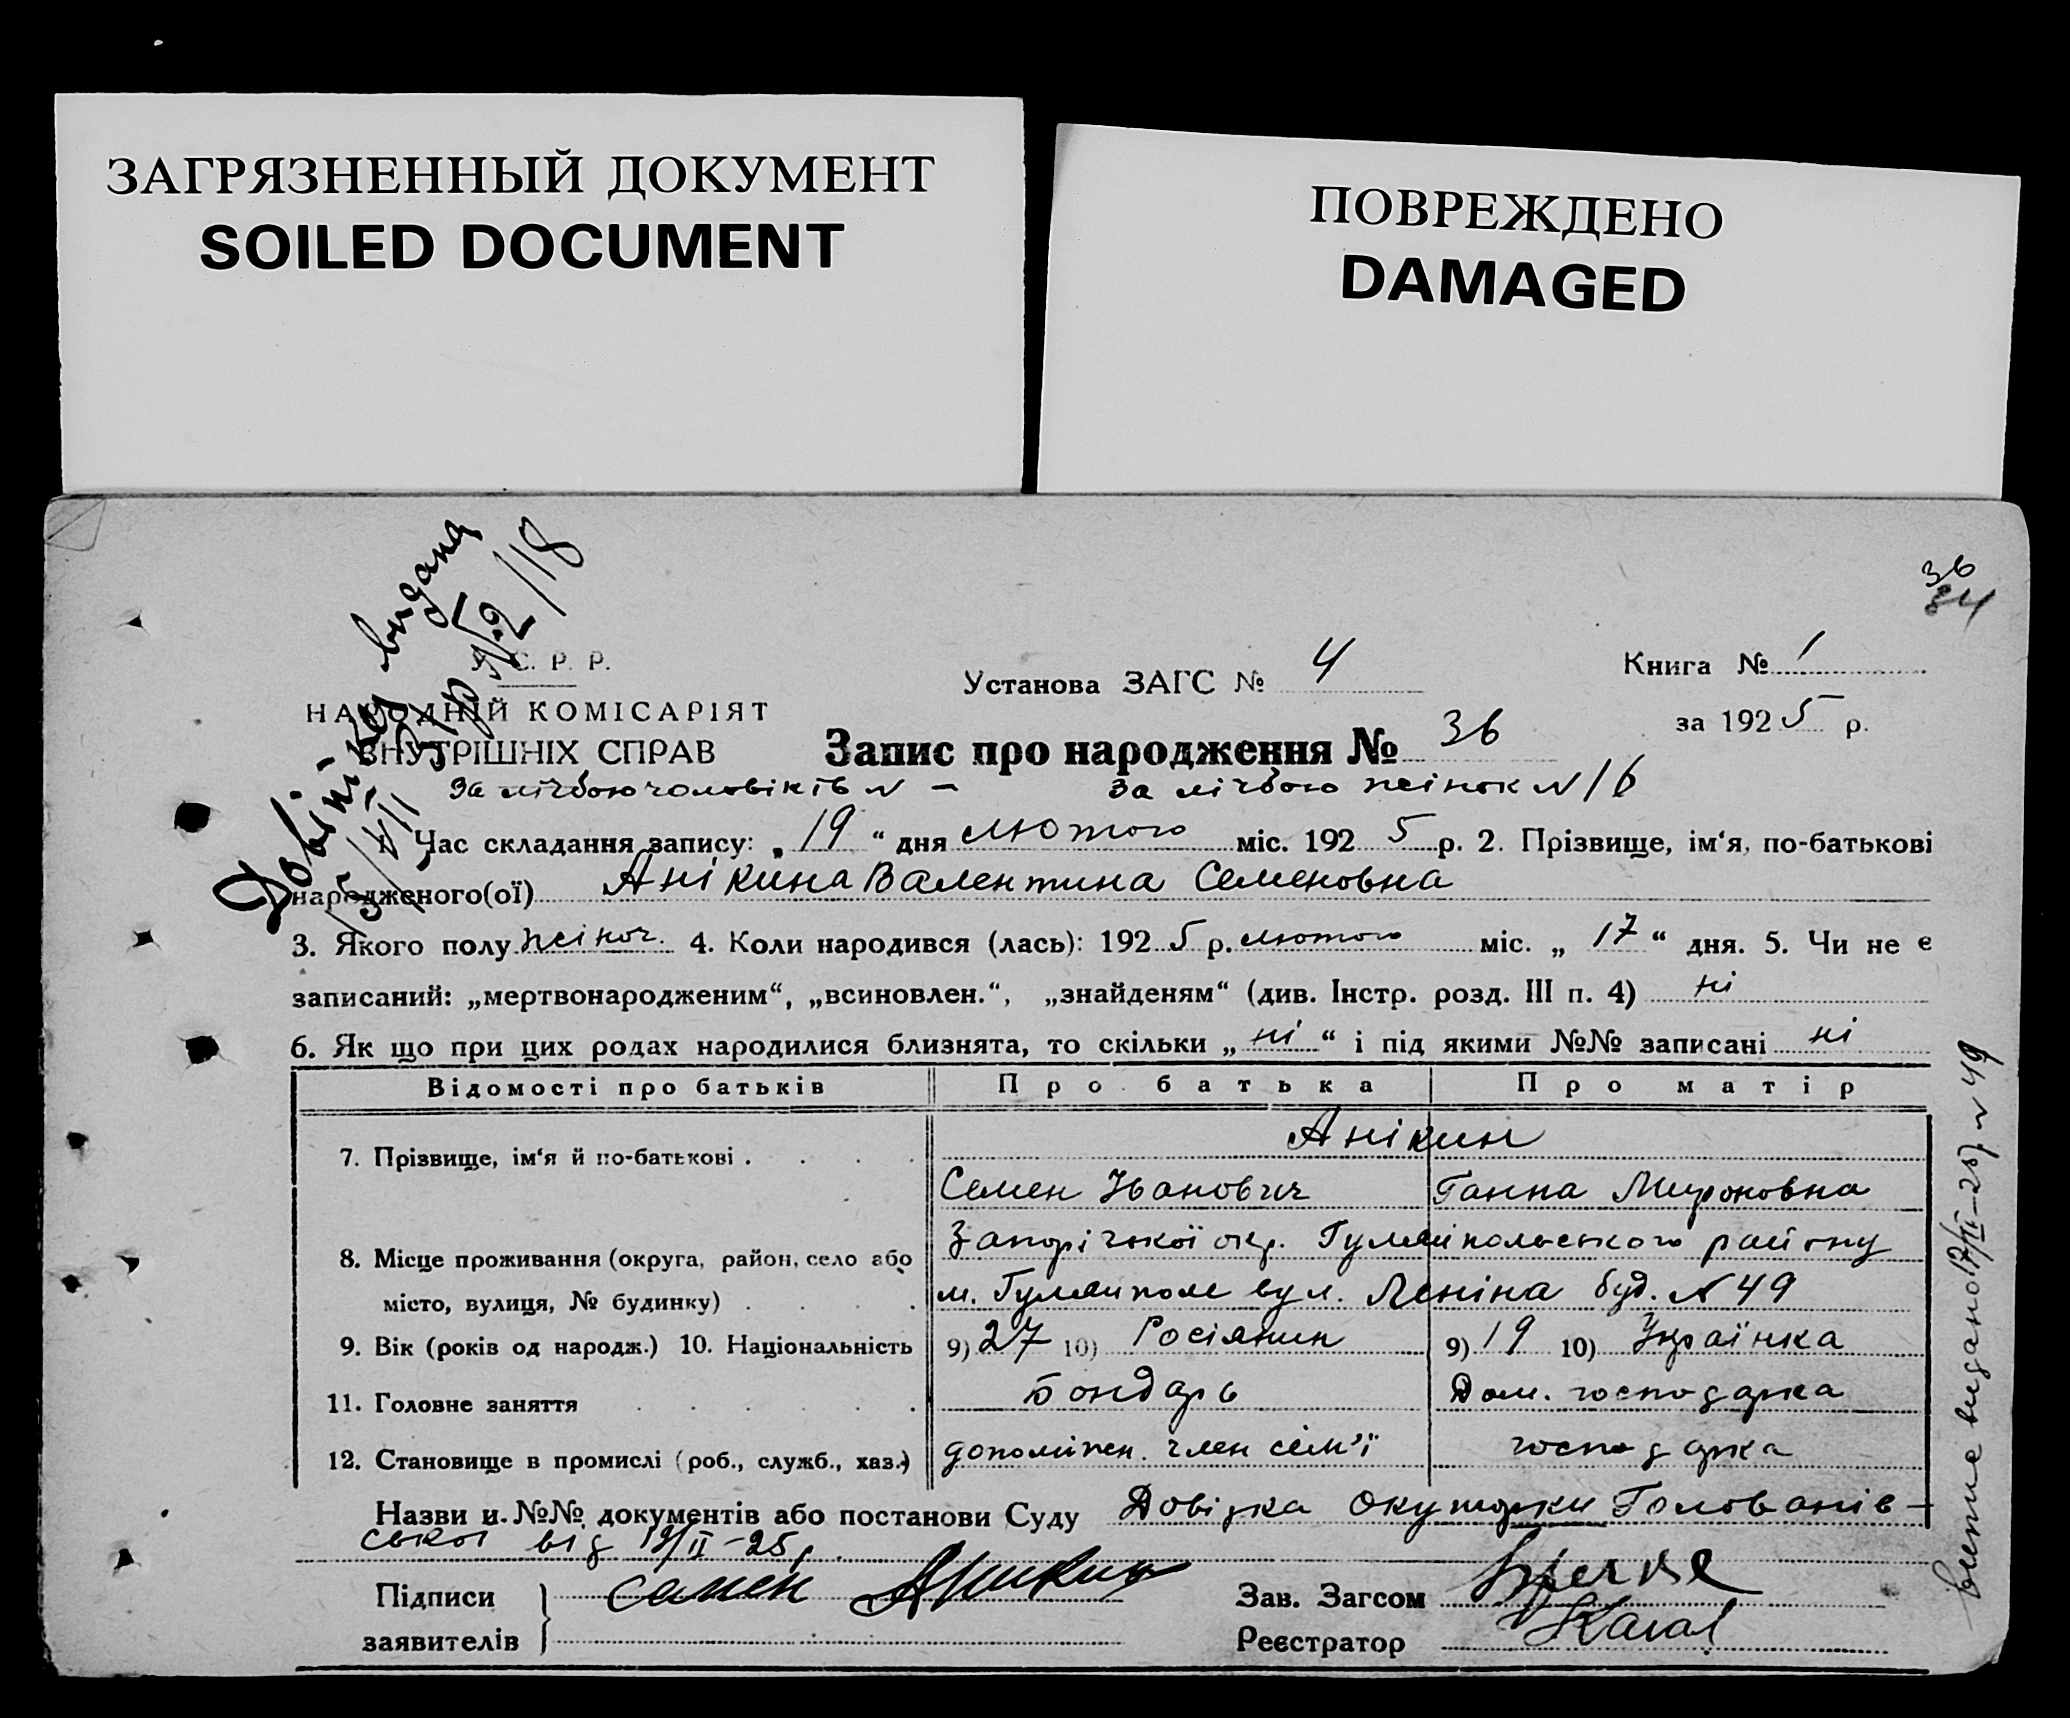 ЗАГРЯЗНЕННЫЙ ДОКУМЕНТ
SOILED DOCUMENT
ПОВРЕЖДЕНО
DAMAGED
36
34
Довідку видана
У. С. Р. Р.
НАРОДНІЙ КОМІСАРІЯТ
ВНУТРІШНІХ СПРАВ
Установа ЗАГС № 4
Книга № 1
за 1925 р.
Запис про народження № 36
За лічбою чоловіків № – За лічбою жінок № 16
1. Час складання запису: „19“ дня лютого міс. 1925 р. 2. Прізвище, ім‘я, по-батькові
народженого(ої) Анікина Валентина Семеновна
3. Якого полу жіноч. 4. Коли народився (лась): 1925 р. лютого міс. „17“ дня. 5. Чи не є
записаний: „мертвонародженим“, „всиновлен.“, „знайденям“ (див. Інстр. розд. III п. 4) ні
6. Як що при цих родах народилися близнята, то скільки „ні“ і під якими №№ записані ні
Відомості про батьків Про батька Про матір
7. Прізвище, ім‘я й по-батькові . Анікин
Семен Іванович Ганна Мироновна
8. Місце проживання (округа, район, село або Запорі чької окр. Гуляйпольського району
місто, вулиця, № будинку) м. Гуляйполе вул. Леніна буд. № 49
9. Вік (років од народж.) 10. Національність 9) 27 10) Росіянин 9) 19 10) Українка
11. Головне заняття Бондарь Дом. господарка
12. Становище в промислі (роб., служб., хаз.) допоміжн. член сем'ї господарка
Назви и. №№ документів або постанови Суду Довідка Голованів–
ської від 19/II–25 р.
Підписи заявителів Семен Аникин
Зав. Загсом
Реєстратор
видано № 49